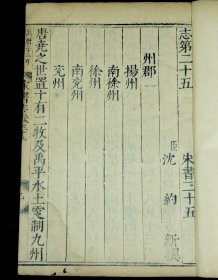 志第二十五
宋書三十五
臣沈約新撰
州郡一
揚州
南徐州
徐州
南兗州
兗州
唐堯之世置十有二牧及禹平水土更制九州